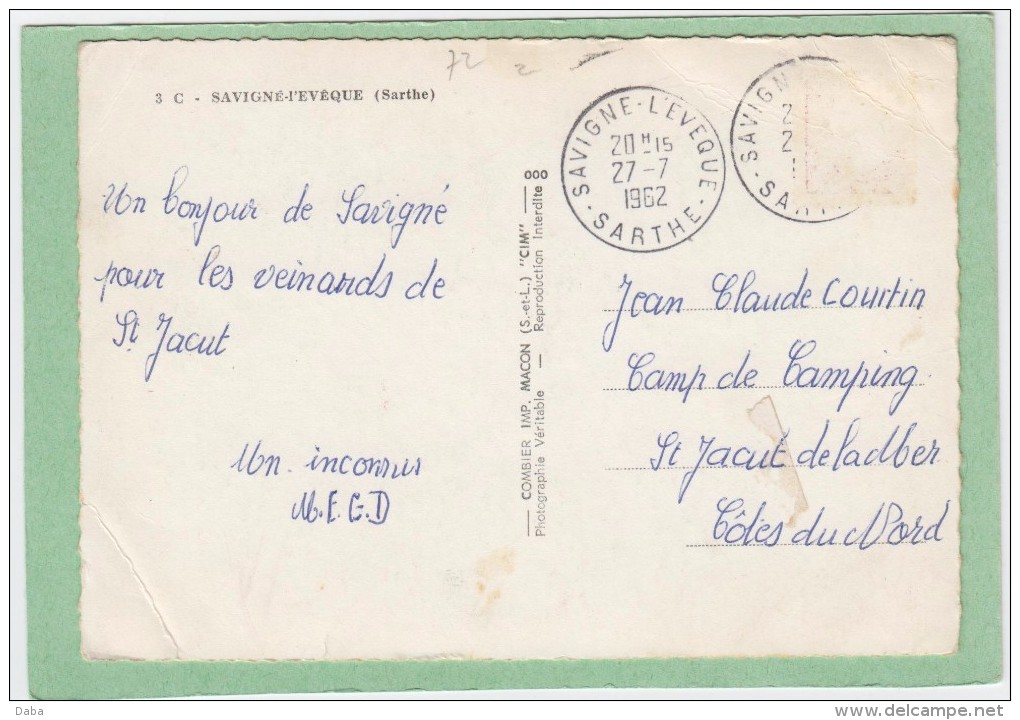 72 2
3 C - SAVIGNÉ-l'EVÊQUE (Sarthe)
Un bonjour de Savigné
pour les veinards de
St Jacut
Un inconnus
M.E.G.D
COMBIER IMP. MACON (S.-et-L.) "CIM" — 000
Photographie Véritable — Reproduction Interdite
SAVIGNE-L'EVEQUE
20 H 15
27 -7
1962
- SARTHE -
SAVIGN
2
2
1
- SART
Jean Claude Courtin
Camp de Camping
St Jacut de la Mer
Côtes du Nord
Daba
http://www.delcampe.net